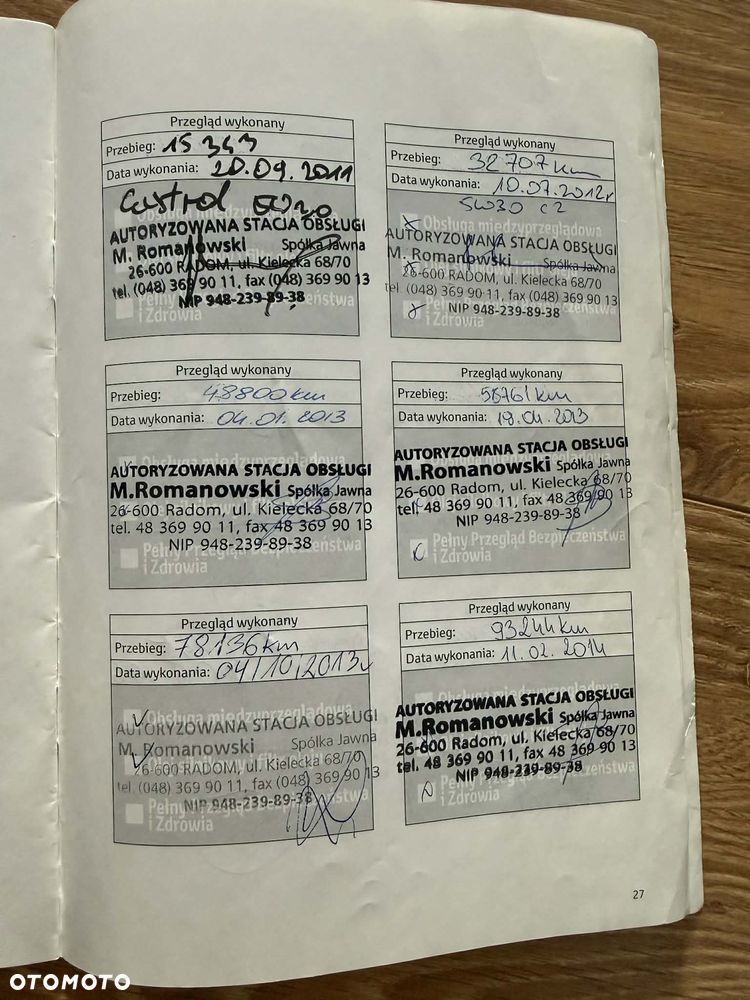 Przegląd wykonany
Przebieg: 15 343
Data wykonania: 20.09.2011
Castrol 5W30
AUTORYZOWANA STACJA OBSŁUGI
M. Romanowski Spółka Jawna
26-600 RADOM, ul. Kielecka 68/70
tel. (048) 369 90 11, fax (048) 369 90 13
NIP 948-239-89-38
Pełny Przegląd Bezpieczeństwa
i Zdrowia
Przegląd wykonany
Przebieg: 32 707 km
Data wykonania: 10.07.2012r
5W30 C2
x Obsługa międzyprzeglądowa
AUTORYZOWANA STACJA OBSŁUGI
M. Romanowski Spółka Jawna
26-600 RADOM, ul. Kielecka 68/70
tel. (048) 369 90 11, fax (048) 369 90 13
NIP 948-239-89-38
Pełny Przegląd Bezpieczeństwa
i Zdrowia
Przegląd wykonany
Przebieg: 48800km
Data wykonania: 04.01.2013
Obsługa międzyprzeglądowa
AUTORYZOWANA STACJA OBSŁUGI
M.Romanowski Spółka Jawna
26-600 Radom, ul. Kielecka 68/70
tel. 48 369 90 11, fax 48 369 90 13
NIP 948-239-89-38
Pełny Przegląd Bezpieczeństwa
i Zdrowia
Przegląd wykonany
Przebieg: 56761km
Data wykonania: 19.04.2013
Obsługa międzyprzeglądowa
AUTORYZOWANA STACJA OBSŁUGI
M.Romanowski Spółka Jawna
26-600 Radom, ul. Kielecka 68/70
tel. 48 369 90 11, fax 48 369 90 13
NIP 948-239-89-38
Pełny Przegląd Bezpieczeństwa
i Zdrowia
Przegląd wykonany
Przebieg: 78136km
Data wykonania: 04/10/2013r
Obsługa międzyprzeglądowa
AUTORYZOWANA STACJA OBSŁUGI
M. Romanowski Spółka Jawna
26-600 RADOM, ul. Kielecka 68/70
tel. (048) 369 90 11, fax (048) 369 90 13
NIP 948-239-89-38
Pełny Przegląd Bezpieczeństwa
i Zdrowia
Przegląd wykonany
Przebieg: 93244km
Data wykonania: 11.02.2014
AUTORYZOWANA STACJA OBSŁUGI
M.Romanowski Spółka Jawna
26-600 Radom, ul. Kielecka 68/70
tel. 48 369 90 11, fax 48 369 90 13
NIP 948-239-89-38
Pełny Przegląd Bezpieczeństwa
i Zdrowia
27
OTOMOTO